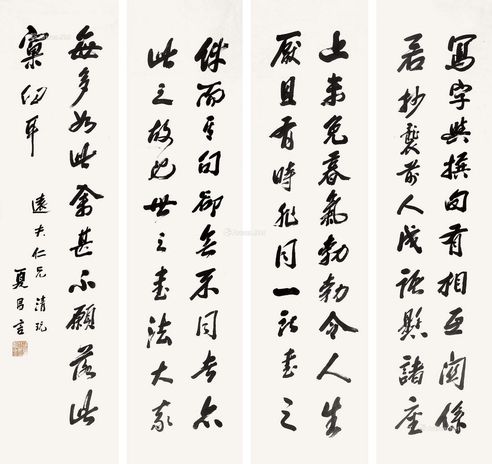 寫字與撰句有相互關係
若抄襲前人成語懸諸座
上未免暮氣勃勃令人生
厭且有時同一書之
而句卻無不同者亦
此之故也世之書法大家
每多如此余甚不願落此
窠臼耳
遠夫仁兄清玩
夏